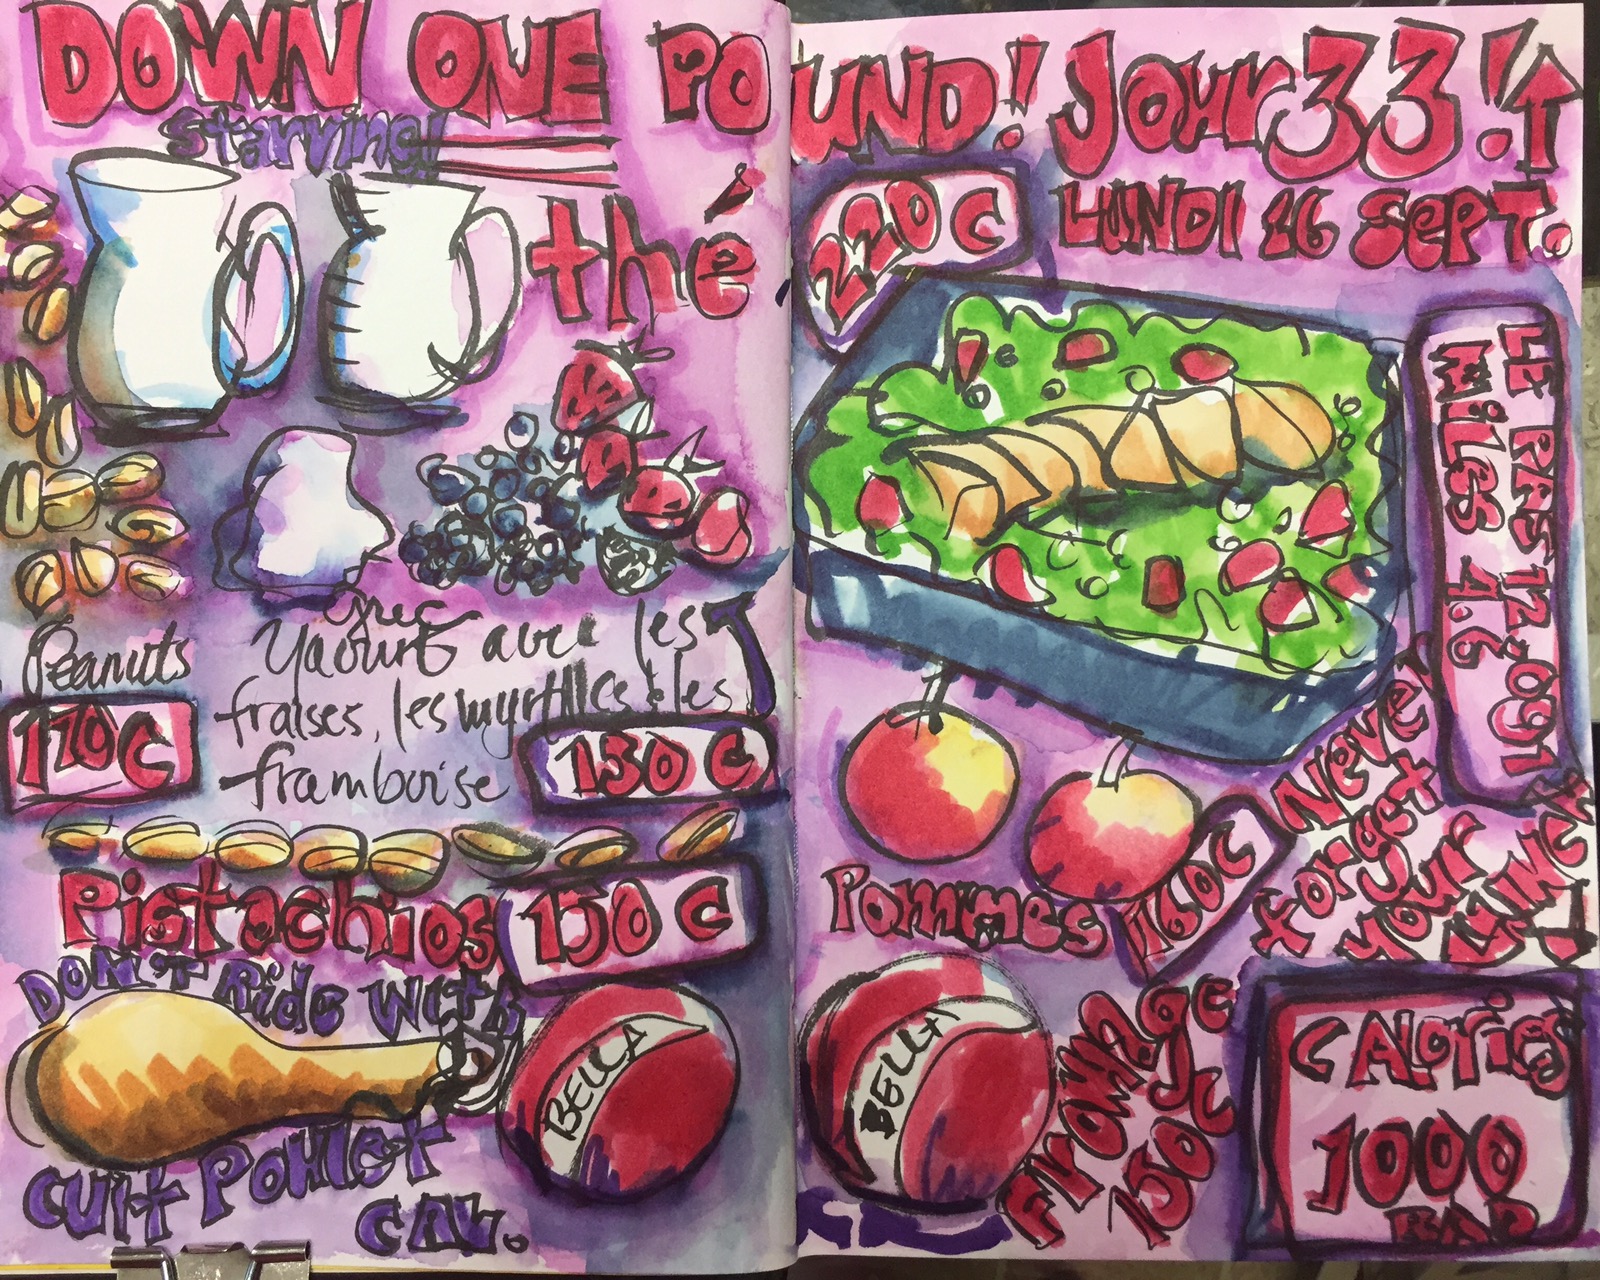 DOWN ONE POUND! Jour 33!
Starving!
thé
Peanuts
170C
Grec
Yaourt avec les
fraises, les myrtilles & les
framboise
130 C
Pistachios
150 C
DON'T Ride With
BELLA
CUIT POULET
CAL.
220 C
LUNDI 16 SEPT.
LE PAS 12,091
MILES 4.6
Pommes
160C
Never
forget
your
LUNCH!
BELLA
FROMAGE
150C
CALORIES
1000
BAD